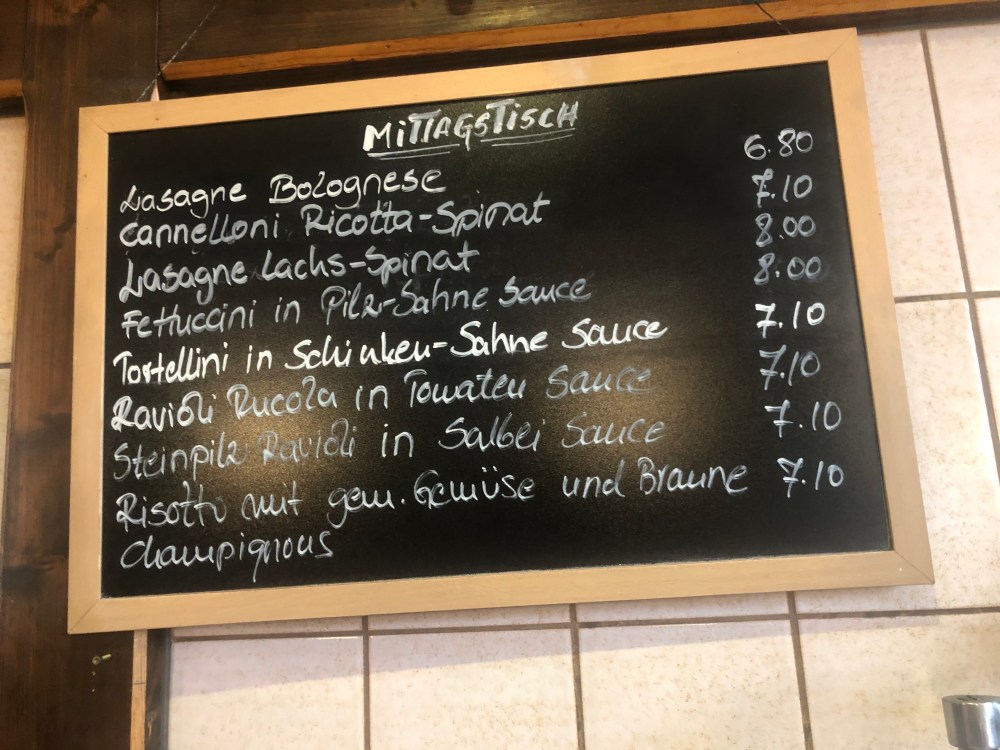 MITTAGSTISCH
Lasagne Bolognese 6.80
Cannelloni Ricotta-Spinat 7.10
Lasagne Lachs-Spinat 8.00
Fettuccini in Pilz-Sahne Sauce 8.00
Tortellini in Schinken-Sahne Sauce 7.10
Ravioli Rucola in Tomaten Sauce 7.10
Steinpilz Ravioli in Salbei Sauce 7.10
Risotto mit gem. Gemüse und Braune 7.10
Champignons